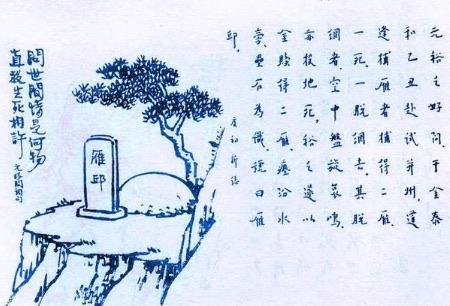 元裕之好問于金泰
和乙丑赴試并州道
逢捕雁者捕得二雁
一死一脱網去其脱
網者空中盤旋哀鳴
亦投地死裕之遂以
金贖得二雁瘞汾水
旁壘石為識號曰雁
邱
雁邱
問世間情是何物
直教生死相許